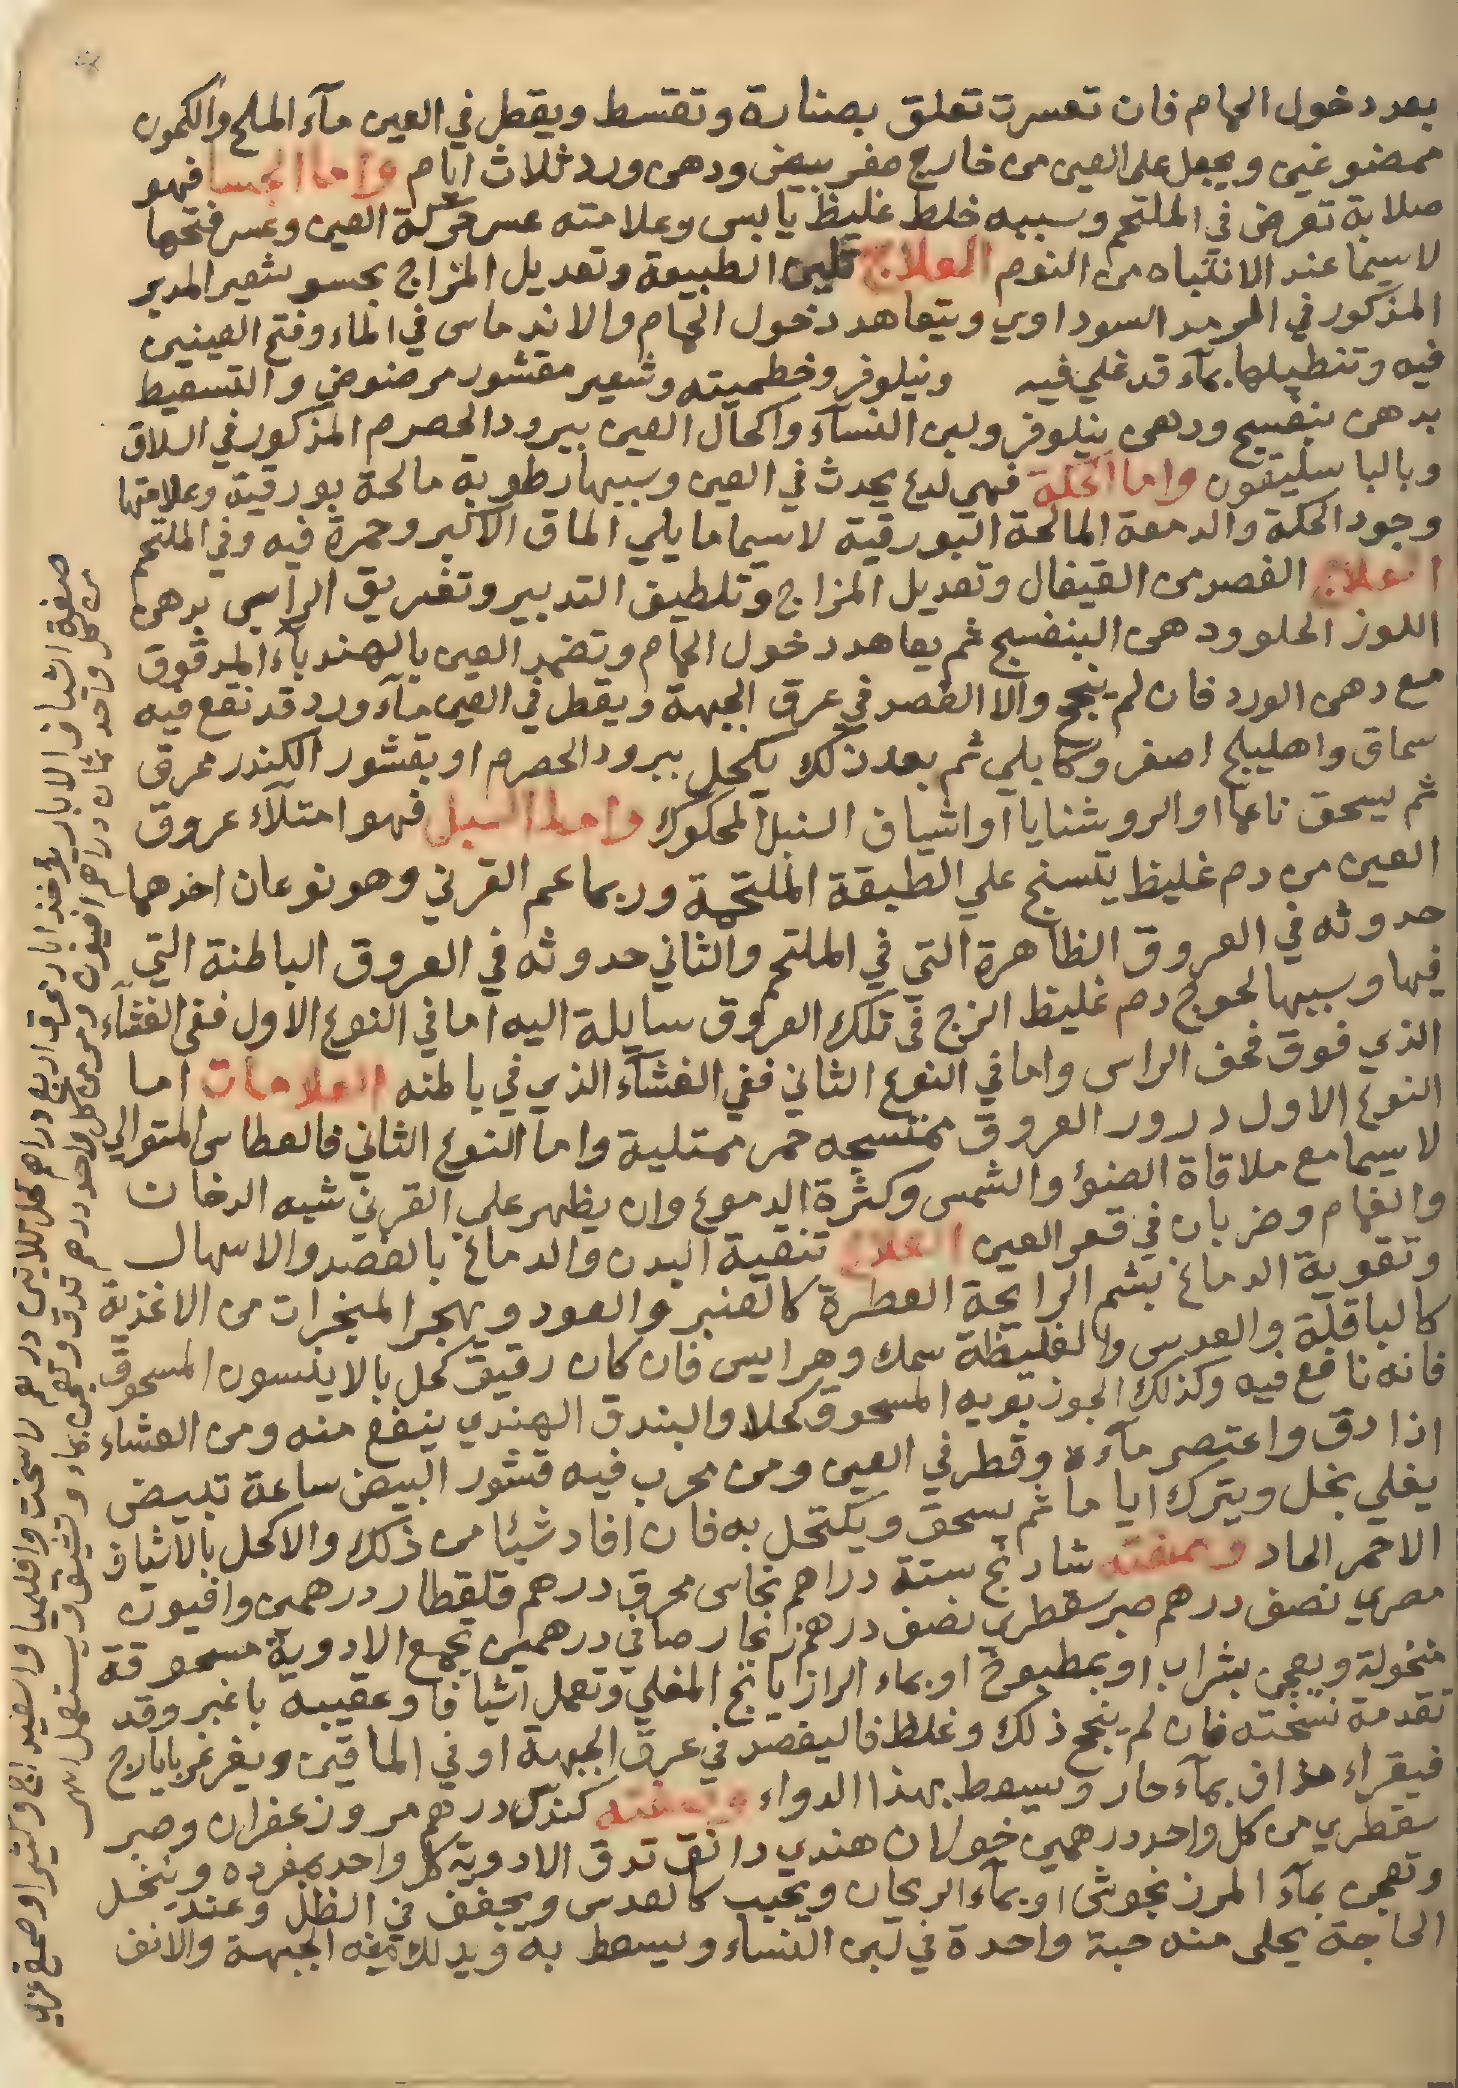 بعد دخول الحمام فان تعسرت تعلق بصنارة وتقسط ويقطر في العين مآء الملح والكمون
ممضوغين ويجعل على العين من خارج صفر بيض ودهن ورد ثلاث ايام واما الجسا فهو
صلابة تعرض في الملتحم وسببه خلط غليظ يابس وعلامته عسر حركة العين وعسر فتحها
لاسيما عند الانتباه من النوم العلاج تليين الطبيعة وتعديل المزاج بحسو شعير المدبر
المذكور في الرمد السوداوي ويتعاهد دخول الحمام والاندماس في الماء وفتح العينين
فيه وتنطيلها بمآء قد غلي فيه ونيلوفر وخطميته وشعير مقشور مرضوض والتسعيط
بدهن بنفسج ودهن نيلوفر ولبن النسآء واكحال العين ببرود الحصرم المذكور في السلاق
وبالباسليقون واما الحكة فهي لدع يحدث في العين وسببها رطوبة مالحة بورقية وعلامتها
وجود الحكة والدمعة المالحة البورقية لاسيما ما يلي الماق الاكبر وحمرة فيه وفي الملتحم
العلاج الفصد من القيفال وتعديل المزاج وتلطيف التدبير وتغريق الراس بدهن
اللوز الحلو ودهن البنفسج ثم يعاهد دخول الحمام وتضمد العين بالهندبآء المدقوق
مع دهن الورد فان لم ينجح والا الفصد في عرق الجبهة ويقطر في العين مآء ورد قد نقع فيه
سماق واهليلج اصفر وكابلي ثم بعد ذلك يكحل ببرود الحصرم او بقشور الكندر محرق
ثم يسحق ناعما او الروشنايا او اشياف السنبل المحكوك واما السبل فهو امتلآء عروق
العين من دم غليظ يتسنج علي الطبقة الملتحمة وربما عم القرني وهو نوعان احدهما
حدوثه في العروق الظاهرة التي في الملتحم والثاني حدوثه في العروق الباطنة التي
فيها وسببها لحوج دم غليظ الزج في تلك العروق سايلة اليه اما في النوع الاول ففي الغشآء
الذي فوق قحف الراس واما في النوع الثاني ففي الغشآء الذي في باطنه العلامات اما
النوع الاول درور العروق منتسجه حمر ممتلية واما النوع الثاني فالعطاس المتوالي
لاسيما مع ملاقاة الضوؤ والشمس وكثرة الدموع وان يظهر علي القرني شبه الدخان
والغمام وضربان في قعر العين العلاج تنقية البدن والدماغ بالفصد والاسهال
وتقوية الدماغ بشم الرايحة العطرة كالعنبر والعود ويهجر المبخرات من الاغذية
كالباقلة والعدس والغليظة سمك وهرايس فان كان رقيق كحل بالاينسون المسحوق
فانه نافع فيه وكذلك الجوز بويه المسحوق كحلا والبندق الهندي ينفع منه ومن العشاء
اذا دق واعتصر مآءه وقطر في العين ومن مجرب فيه قشور البيض ساعة تبيض
يغلي بخل ويترك اياما ثم يسحق ويكتحل به فان افاد شيئا من ذلك والا كحل بالاشياف
الاحمر الحاد وصفته شادنج ستة دراهم نحاس محرق درهم قلقطار درهمين وافيون
مصري نصف درهم صبر سقطري نصف درهم زنجار صافي درهمين تجمع الادوية مسحوقة
منخولة ويعجن بشراب او بمطبوخ او بماء الرازيانج المغلي وتعمل اشيافا وعقيبه باغبر وقد
تقدمة نسخته فان لم ينجح ذلك وغلظ فاليفصد في عرق الجبهة او في الماقين ويغرغر بايارج
فيقراء مذاف بمآء حار ويسعط بهذا الدواء وصفته كندك درهم مر وزعفران وصبر
سقطري من كل واحد درهمين خولان هندي دانق تدق الادوية كل واحد بمفرده وينخل
وتعجن بمآء المرزنجوش او بمآء الريحان ويحبب كالعدس ويجفف في الظل وعند
الحاجة يحلى منه حبة واحدة في لبن النساء ويسعط به ويدلك الجبهة والانف
صفة اشياف الابار يؤخذ ابار محرق اربع دراهم كحل ثلاثين درهم واقليميا واسفيداج وكثيرا وصمغ عربي
من كل واحد ثمان دراهم افيون ومر من كل واحد درهم تدق وتعجن بماء وتشيف ويستعمل